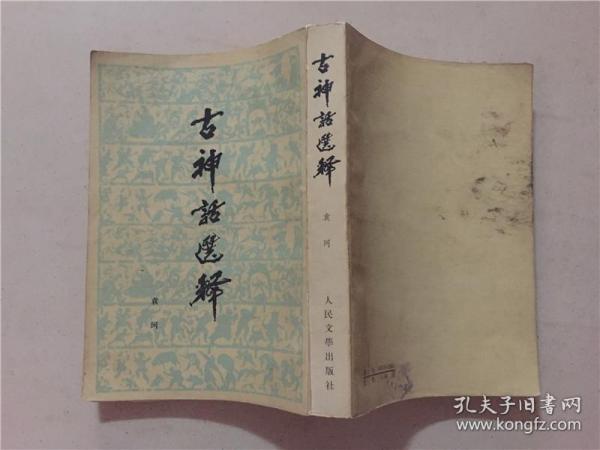 古神話選釋
袁珂
古神話選釋
袁珂
人民文學出版社
孔夫子旧书网
www.kongfz.com